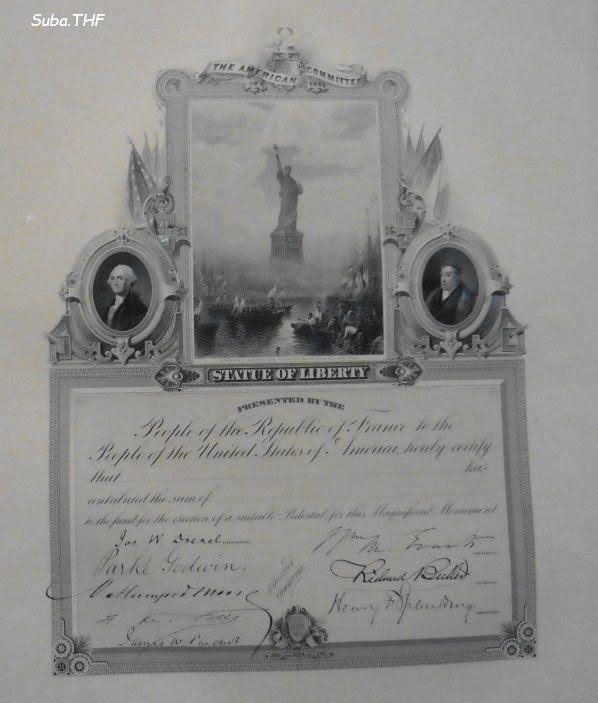 Suba.THF
THE AMERICAN COMMITTEE
STATUE OF LIBERTY
PRESENTED BY THE
People of the Republic of France to the
People of the United States of America, hereby certify
that has
contributed the sum of
to the fund for the erection of a suitable Pedestal for this Magnificent Monument
Jos W. Drexel
Parke Godwin.
EXECUTIVE
COMMITTEE
Richard Butler
Henry F. Spaulding
James W. Pinchot